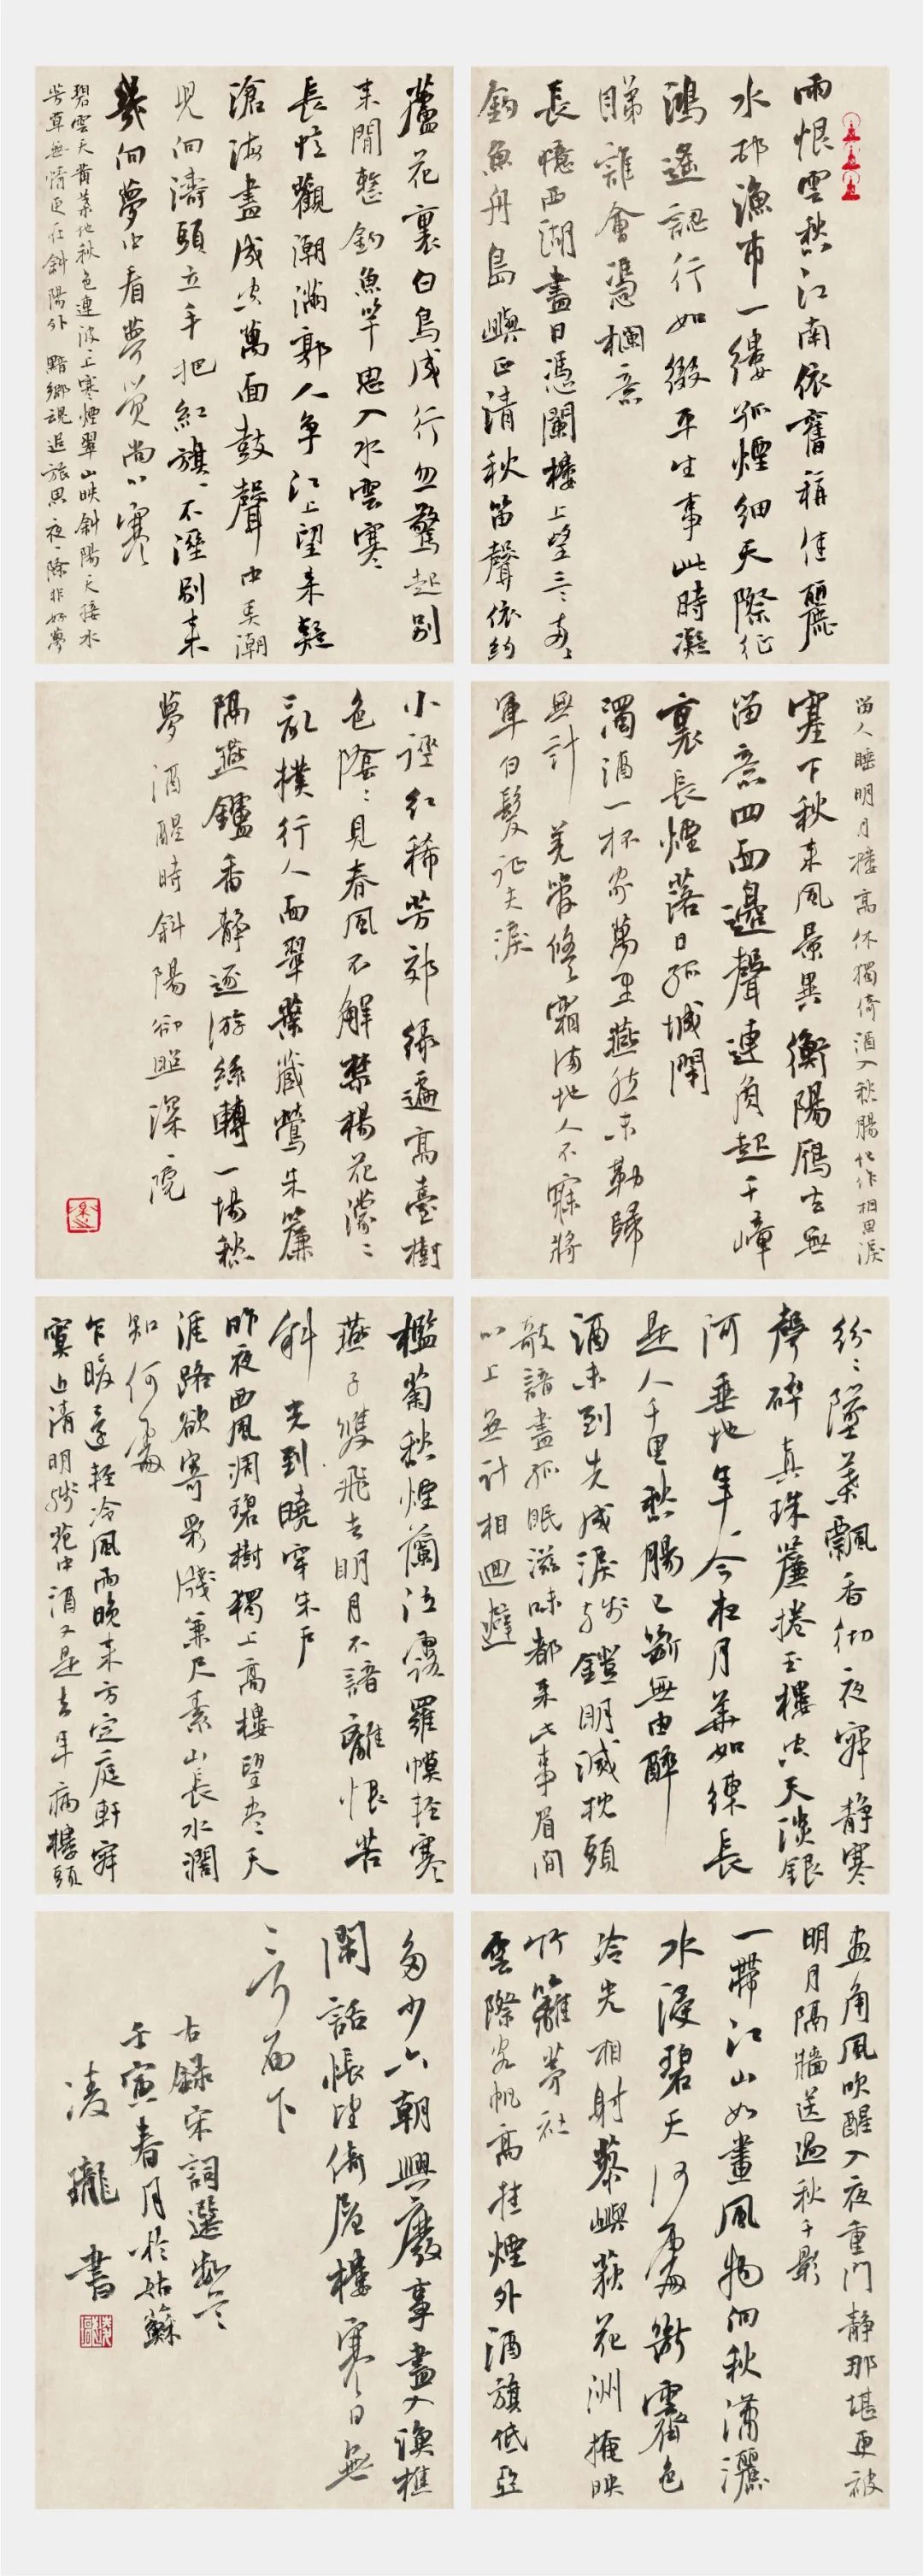 雨恨雲愁江南依舊稱佳麗
水邨漁市一縷孤煙細天際征
鴻遙認行如綴平生事此時凝
睇誰會憑欄意
長憶西湖盡日憑闌樓上望三〻兩〻
釣魚舟島嶼正清秋笛聲依約
蘆花裏白鳥成行忽驚起別
來閒整釣魚竿思入水雲寒
長憶觀潮滿郭人爭江上望來疑
滄海盡成空萬面鼓聲中弄潮
兒向濤頭立手把紅旗〻不溼別來
幾向夢中看夢覺尚心寒
碧雲天黃葉地秋色連波〻上寒煙翠山映斜陽天接水
芳草無情更在斜陽外黯鄉魂追旅思夜〻除非好夢
留人睡明月樓高休獨倚酒入愁腸化作相思淚
塞下秋來風景異衡陽鴈去無
留意四面邊聲連角起千嶂
裏長煙落日孤城閉
濁酒一杯家萬里燕然未勒歸
無計羌管悠〻霜滿地人不寐將
軍白髮征夫淚
小逕紅稀芳郊綠遍高臺樹
色陰〻見春風不解禁楊花濛〻
亂撲行人面翠葉藏鶯朱簾
隔燕鑪香靜逐游絲轉一場愁
夢酒醒時斜陽卻照深〻院
紛〻墜葉飄香砌夜寂靜寒
聲碎真珠簾捲玉樓空天淡銀
河垂地年〻今夜月華如練長
是人千里愁腸已斷無由醉
酒未到先成淚殘鐙明滅枕頭
敧諳盡孤眠滋味都來此事眉間
心上無計相迴避
檻菊愁煙蘭泣露羅幙輕寒
燕子雙飛去明月不諳離恨苦
斜光到曉穿朱戶
昨夜西風凋碧樹獨上高樓望盡天
涯路欲寄彩牋兼尺素山長水濶
知何處
乍暖還輕冷風雨晚來方定庭軒寂
寞近清明殘花中酒又是去年病樓頭
画角風吹醒入夜重門靜那堪更被
明月隔牆送過秋千影
一帶江山如畫風物向秋瀟灑
水浸碧天何處斷霽色
冷光相射蓼嶼荻花洲掩映
竹籬茅社
雲際客帆高挂煙外酒旗低亞
多少六朝興廢事盡入漁樵
閒話悵望倚危樓寒日無
言西下
右錄宋詞選數首
壬寅春月於姑蘇
凌瓏書